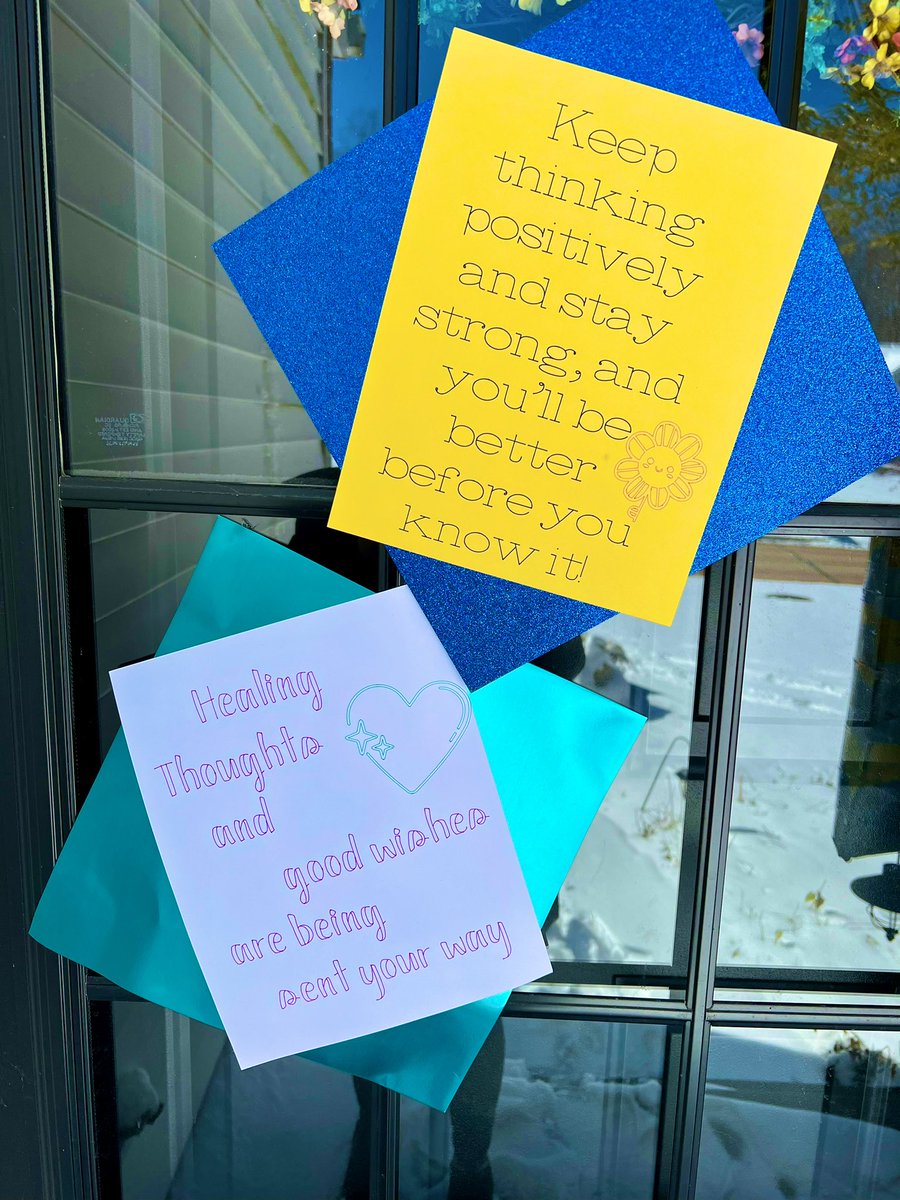 Keep
thinking
positively
and stay
strong, and
you'll be
better
before you
know it!
Healing
Thoughts
and
good wishes
are being
sent your way